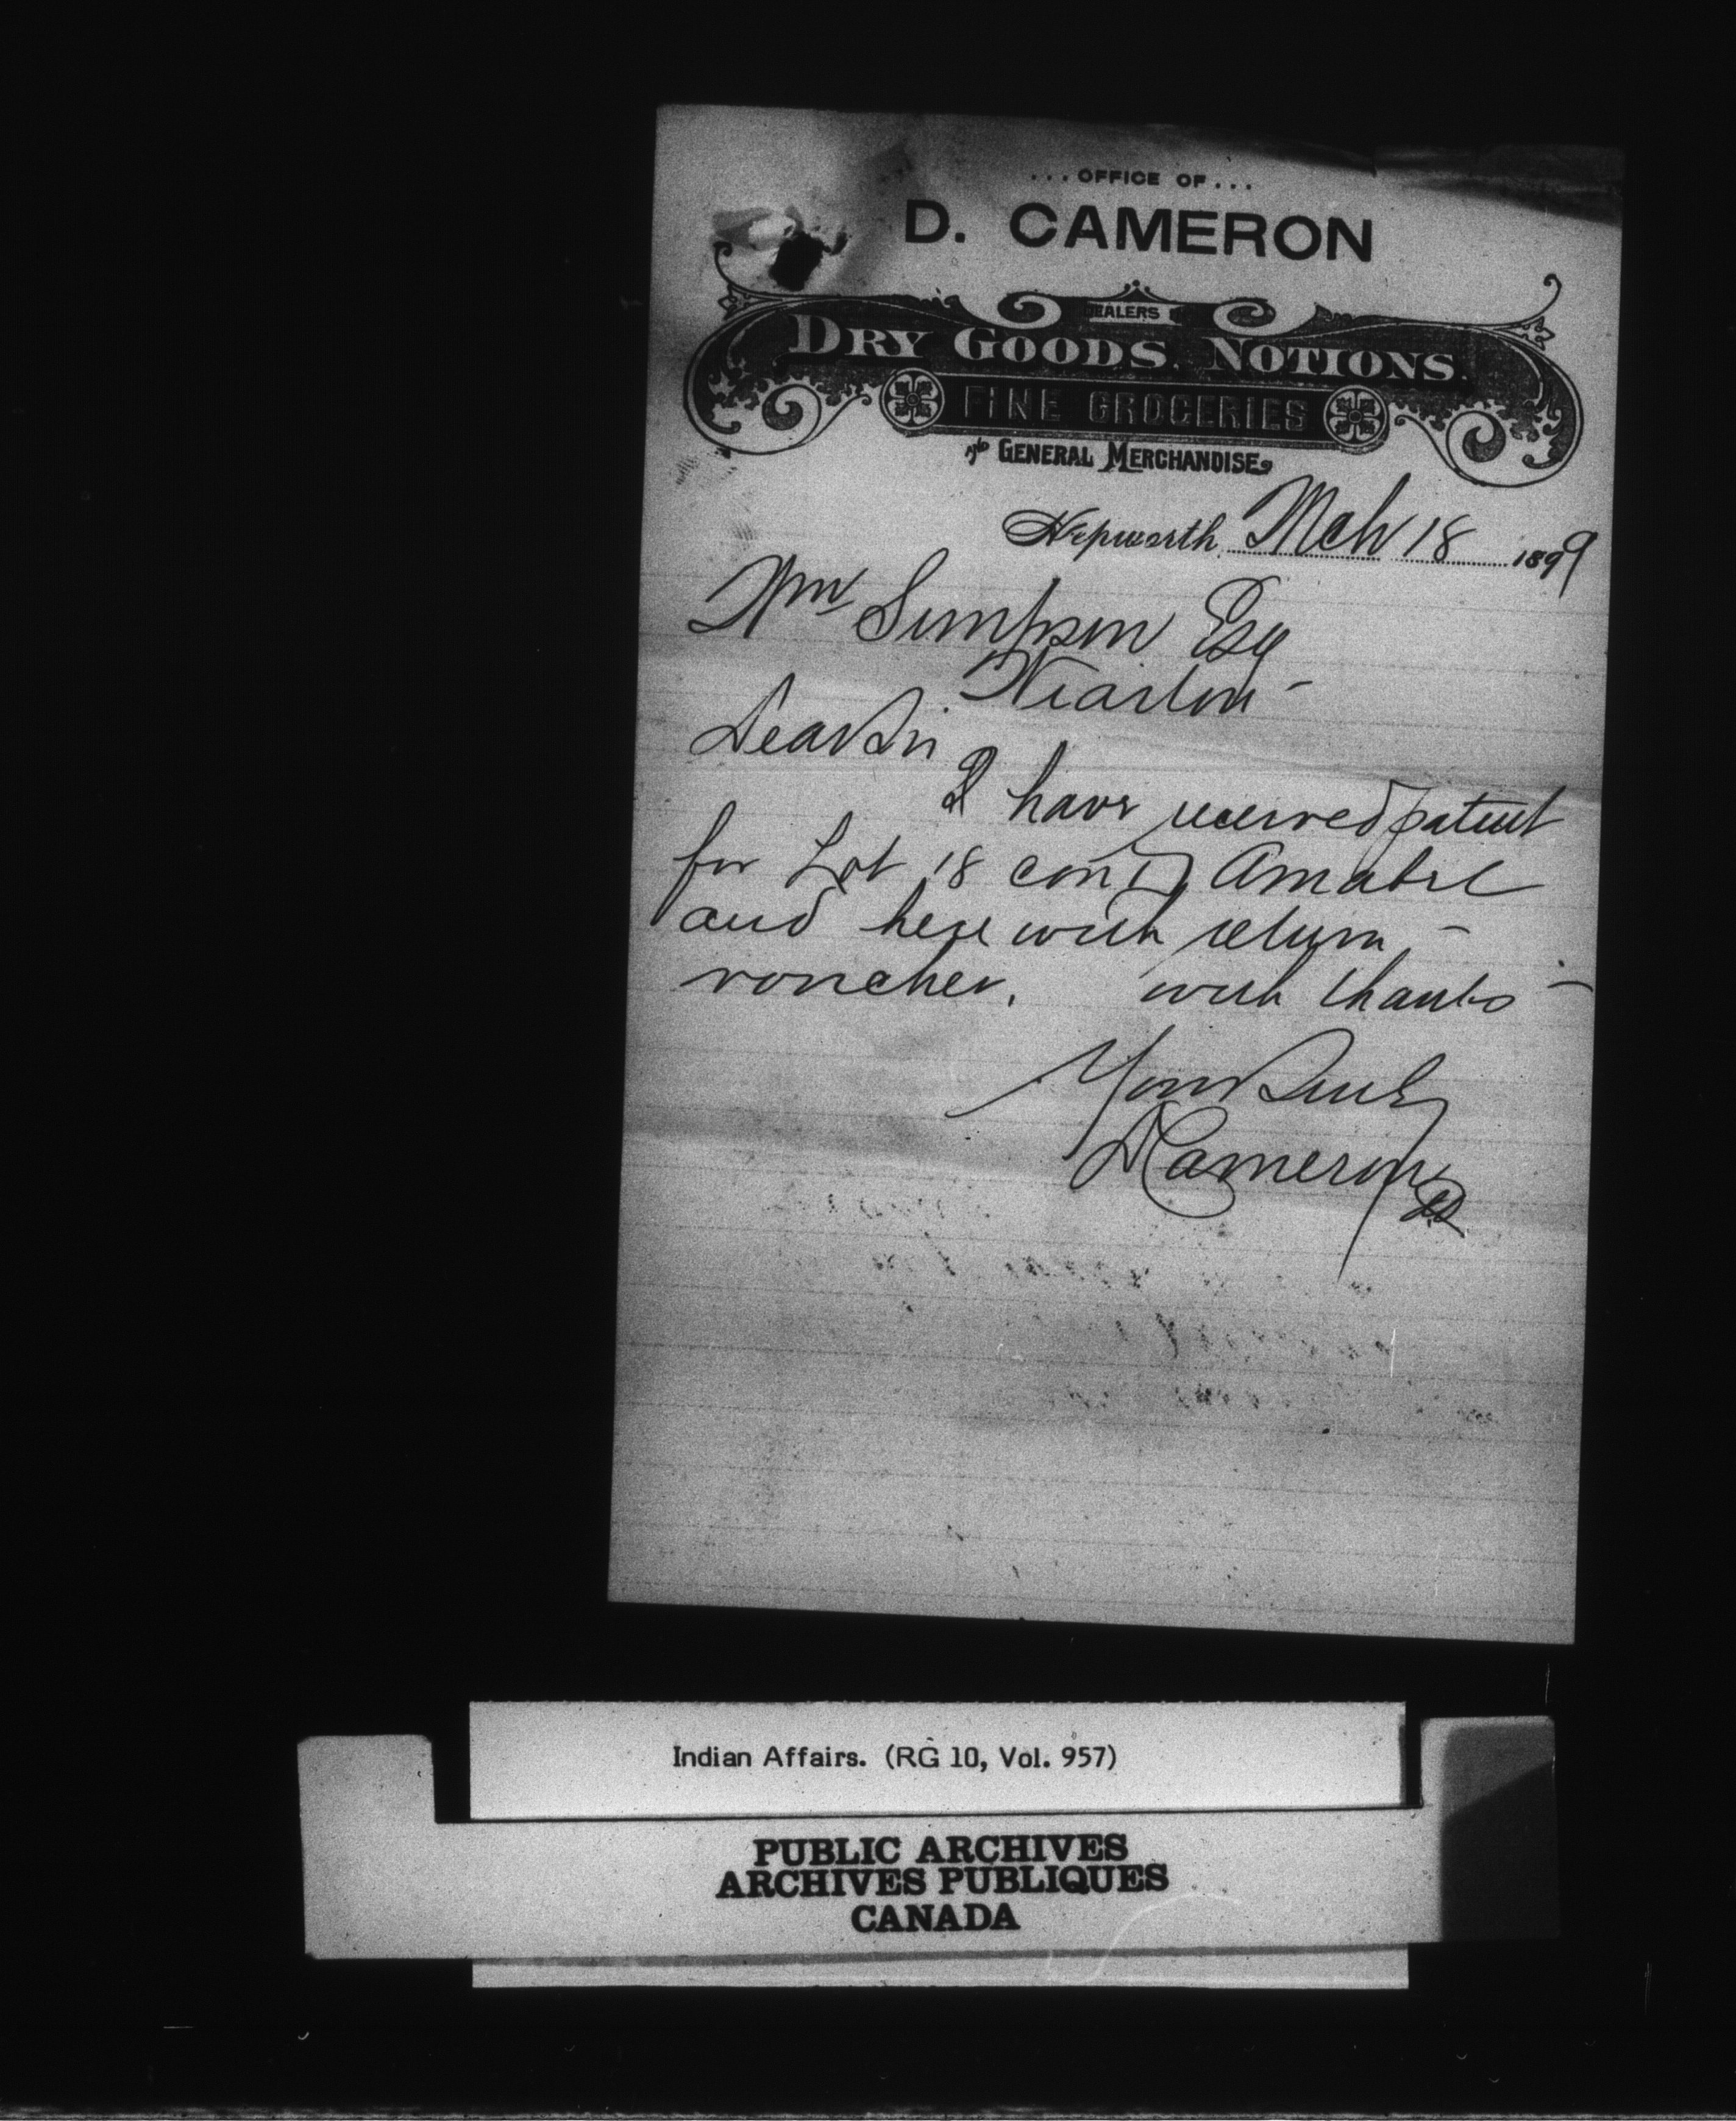 ... OFFICE OF ...
D. CAMERON
DEALERS
DRY GOODS, NOTIONS,
FINE GROCERIES
GENERAL MERCHANDISE
Hepworth, Mch 18 1899
Wm Simpson Esq
Wiarton -
Dear Sir
I have received patent
for Lot 18 con D Amabel
and here with return -
voucher. with thanks -
Yours Truly
D Cameron
Indian Affairs. (RG 10, Vol. 957)
PUBLIC ARCHIVES
ARCHIVES PUBLIQUES
CANADA